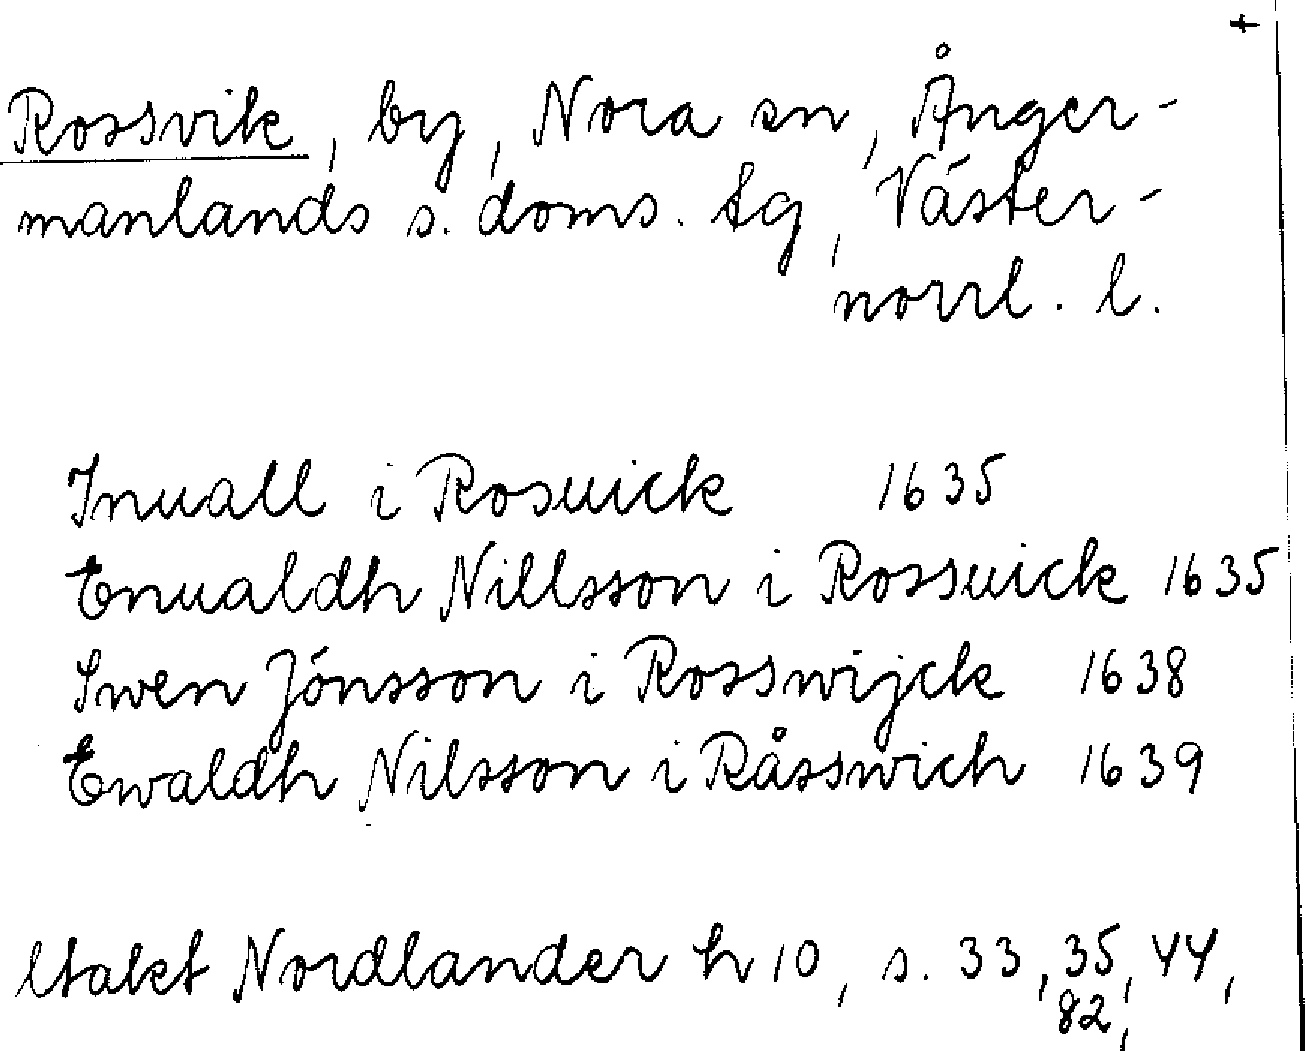 +
Rossvik, by, Nora sn, Ånger-
manlands s. doms. tg, Väster-
norrl. l.
Inuall i Rosuick 1635
Enualdh Nillsson i Rossuick 1635
Swen Jónsson i Rosswijck 1638
Ewaldh Nilsson i Råsswich 1639
Utakt Nordlander h 10, s. 33, 35, 44,
82,